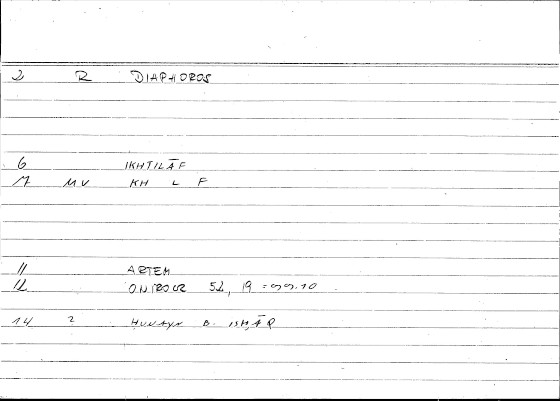 2 R DIAPHOROS
6 IKHTILĀF
7 MV KH L F
11 ARTEM
12 ONIROCR 52, 19 = 99.10
14 2 HUNAYN B. ISḤĀQ